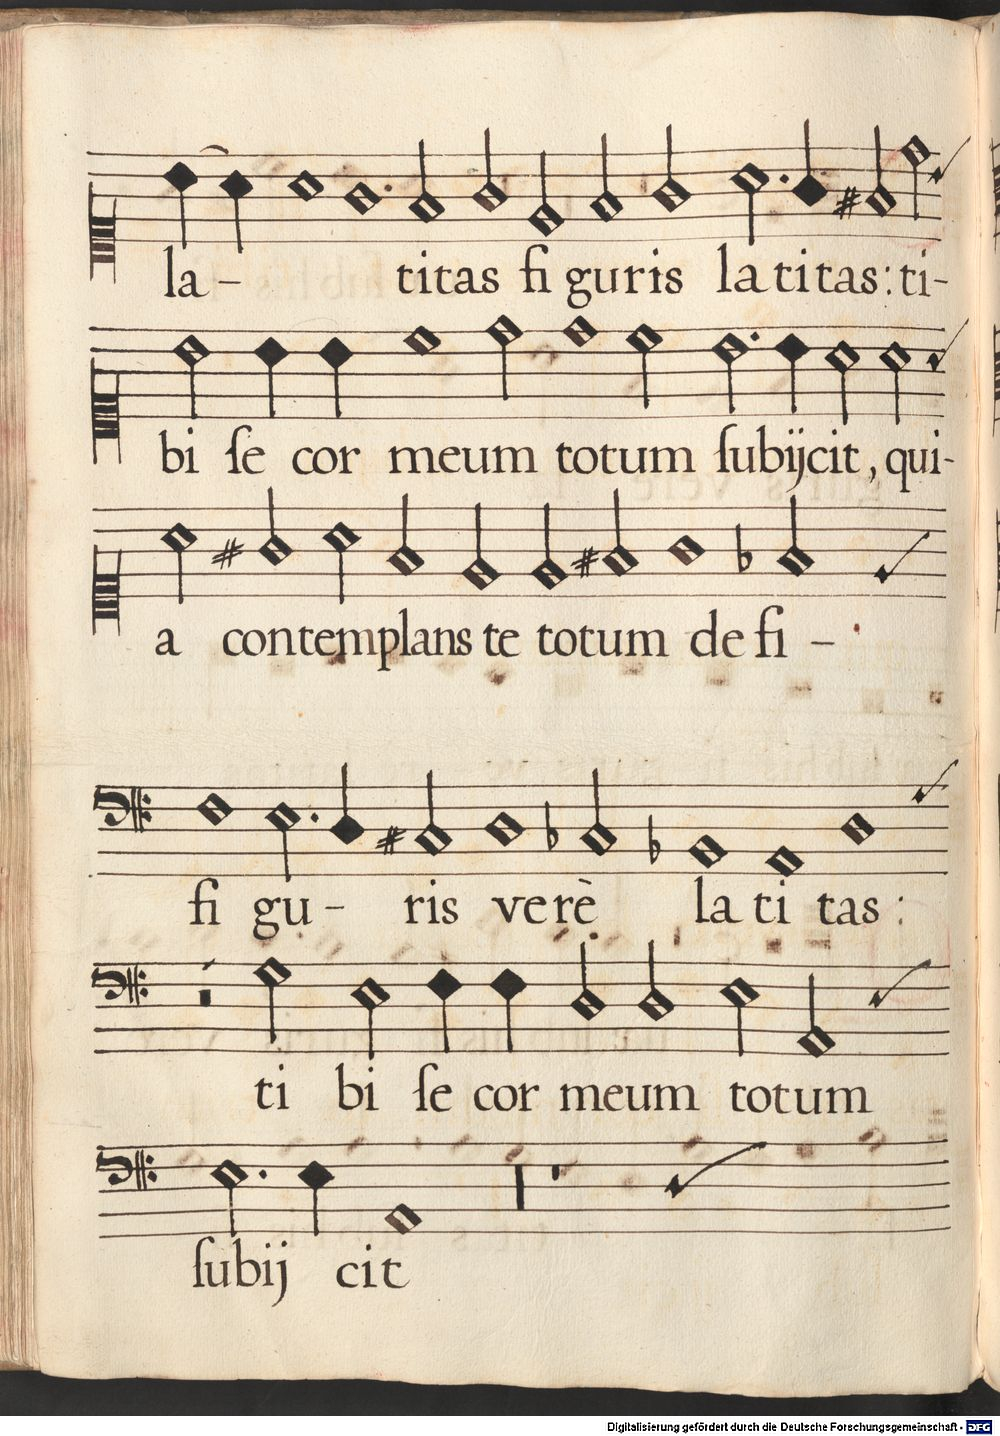 la- titas fi guris la titas: ti-
bi ſe cor meum totum ſubijcit, qui-
a contemplans te totum de fi -
fi gu- ris verè la ti tas:
ti bi ſe cor meum totum
ſubij cit
Digitalisierung gefördert durch die Deutsche Forschungsgemeinschaft - DFG